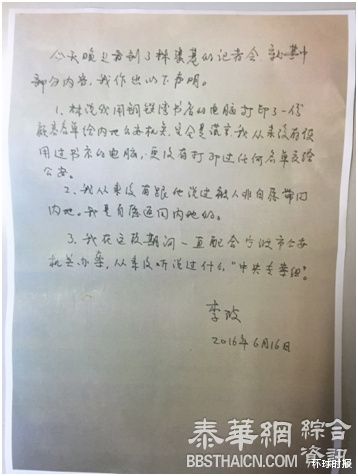 今天晚上看到了林荣基的记者会，就其中
部分内容，我作出以下声明。
1. 林说我用铜锣湾书店的电脑打印了一份
读者名单给内地办案机关，完全是谎言。我从来没有使
用过书店的电脑，更没有打印过任何名单交给
公安。
2. 我从来没有跟他说过被人非自愿带回
内地。我是自愿返回内地的。
3. 我在这段期间一直配合宁波市公安
机关办案，从来没听说过什么“中央专案组”。
李波
2016年6月16日
泰華網 綜合資訊
BBSTHAICN.COM
环球时报